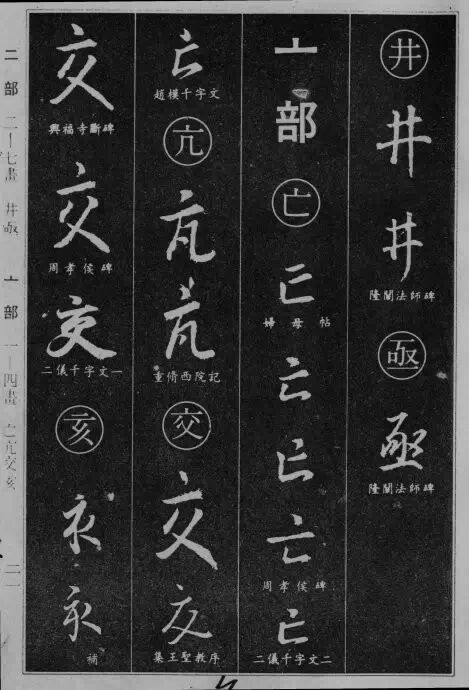 井
井
井
隆闡法師碑
亟
亟
隆闡法師碑
亠部
亡
亡
婦母帖
亡
亡
亡
周孝侯碑
亡
二儀千字文二
亡
趙模千字文
亢
亢
亢
重脩西院記
交
交
交
集王聖教序
交
興福寺斷碑
交
周孝侯碑
交
二儀千字文一
亥
亥
亥
補
二部 二—七畫 井亟 亠部 一—四畫 亡亢交亥 二一